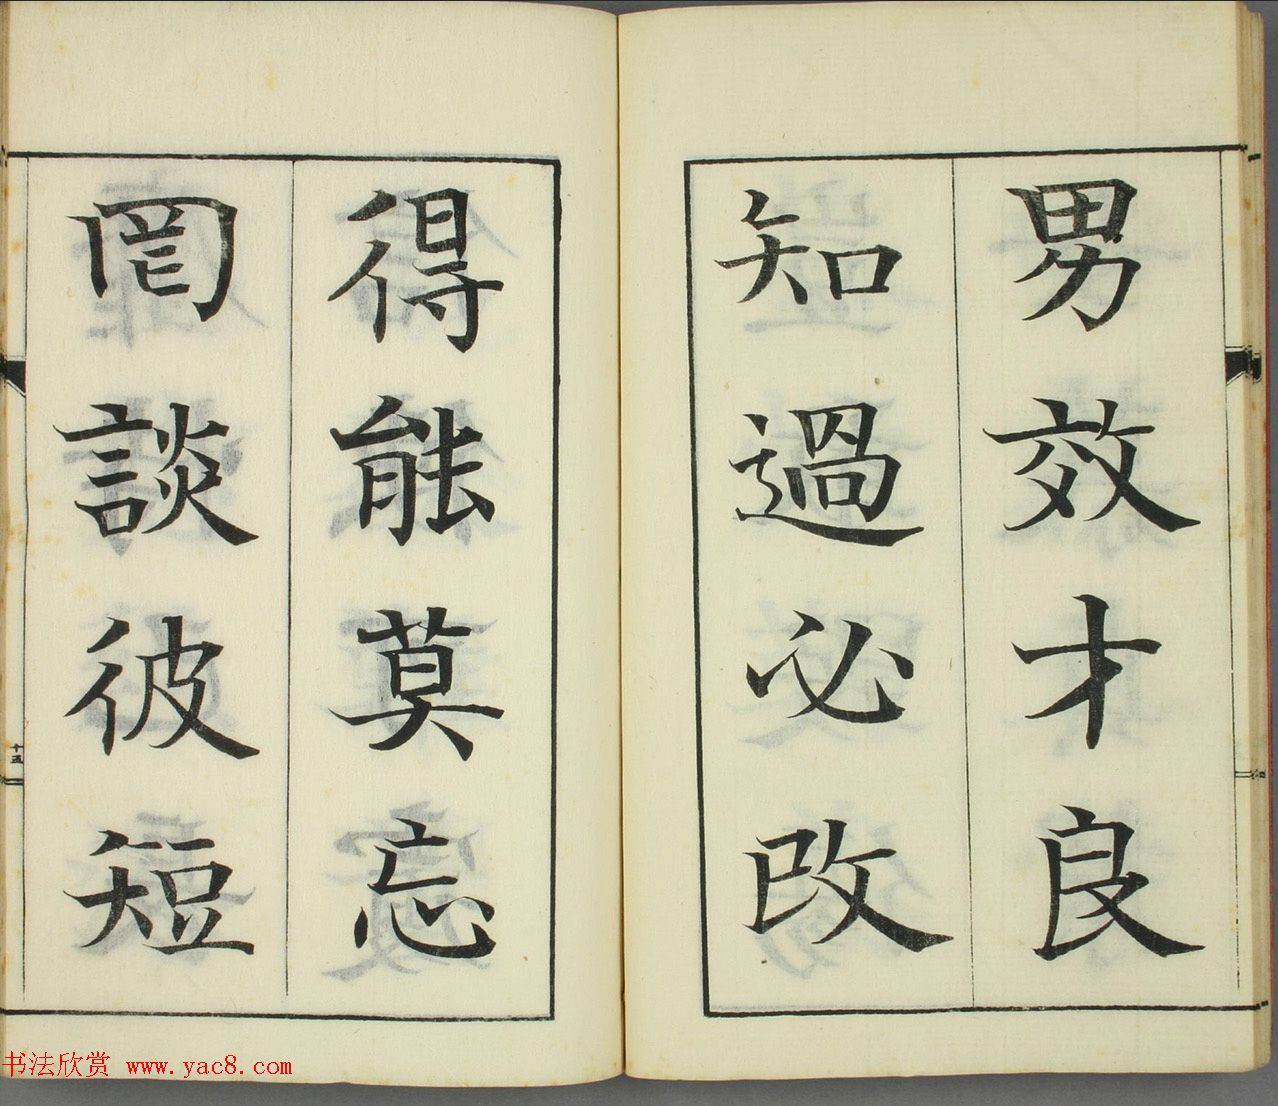 男效才良
知過必改
得能莫忘
罔談彼短
十五
书法欣赏 www.yac8.com